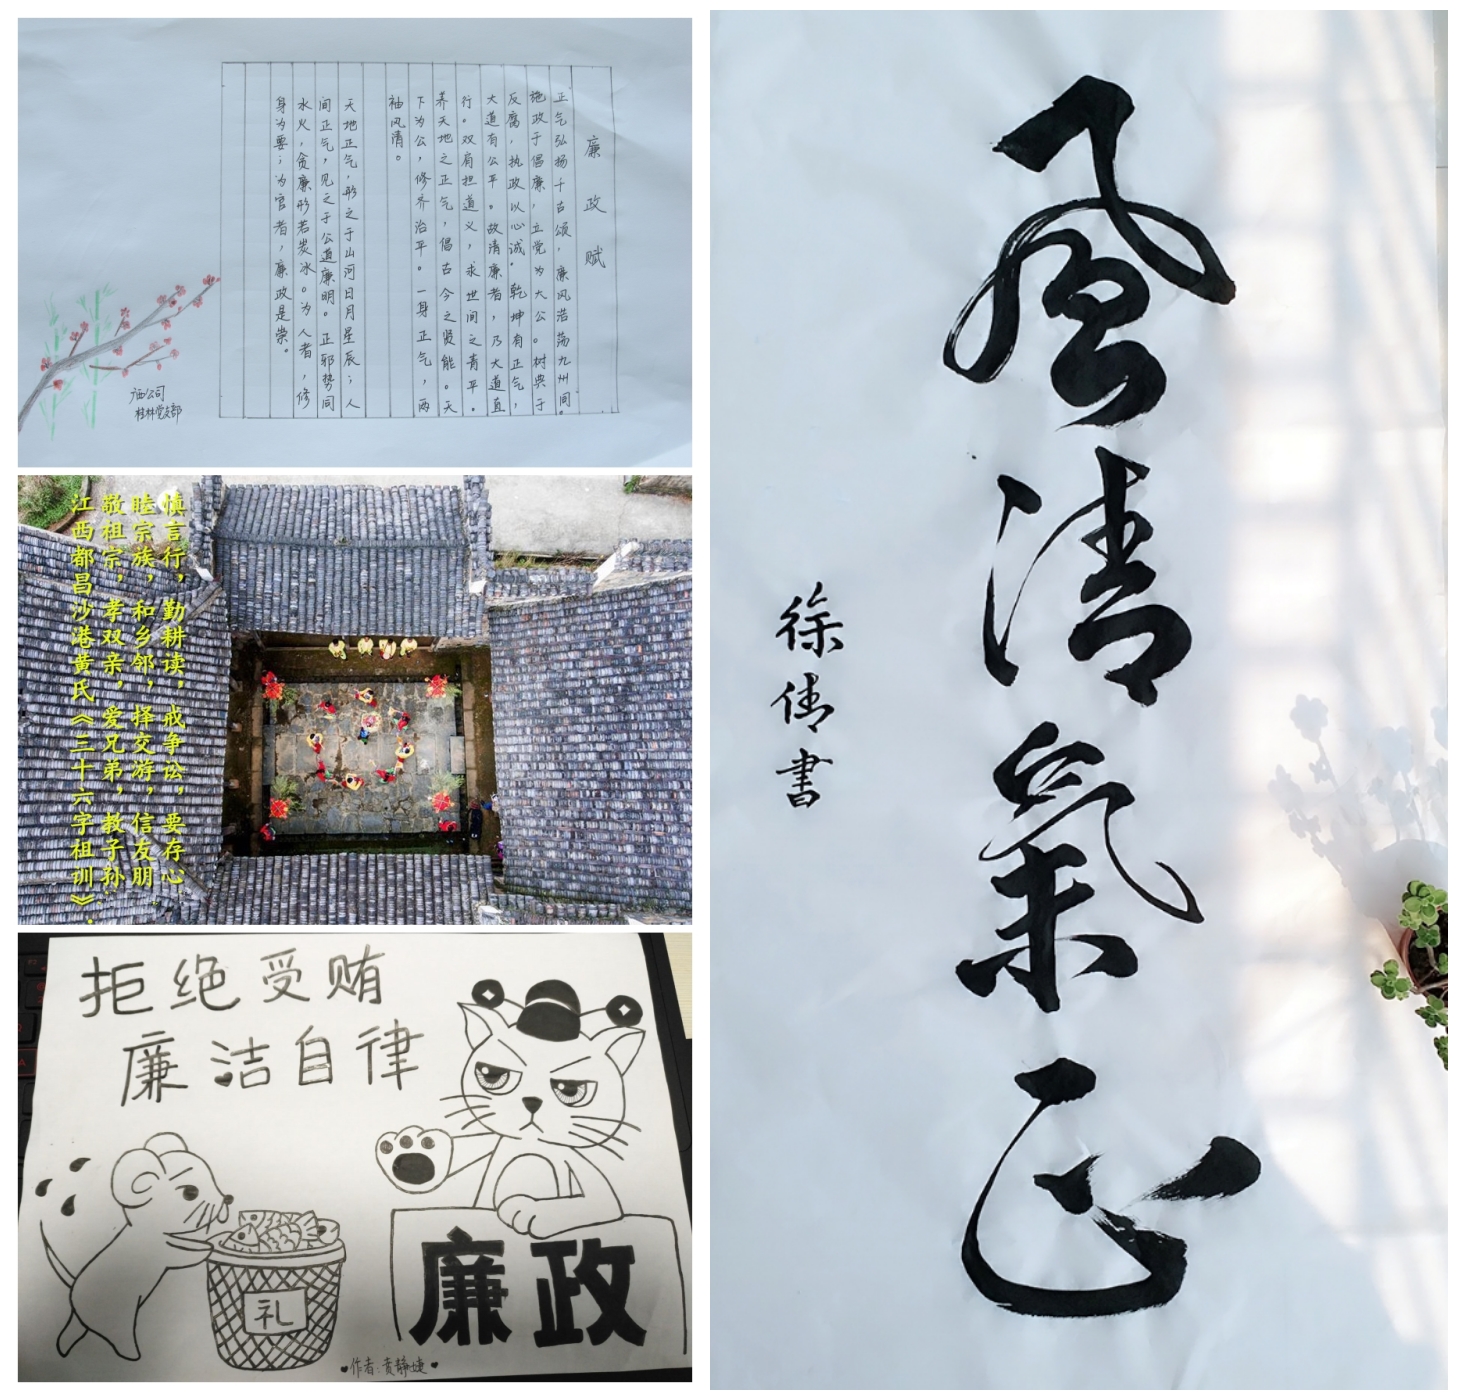 廉政赋
正气弘扬千古颂，廉风浩荡九州同。
施政于倡廉，立党为大公。树典于
反腐，执政以心诚。乾坤有正气，
大道有公平。故清廉者，乃大道直
行。双肩担道义，求世间之青平。
养天地之正气，倡古今之贤能。天
下为公，修齐治平。一身正气，两
袖风清。
天地正气，形之于山河日月星辰；人
间正气，见之于公道廉明。正邪势同
水火，贪廉形若炭冰。为人者，修
身为要；为官者，廉政是崇。
广西公司
桂林党支部
慎言行，勤耕读，戒争讼，要存心
睦宗族，和乡邻，择交游，信友朋
敬祖宗，孝双亲，爱兄弟，教子孙
江西都昌沙港黄氏《三十六字祖训》.
拒绝受贿
廉洁自律
礼
廉政
作者：黄静婕
風清氣正
徐倩書